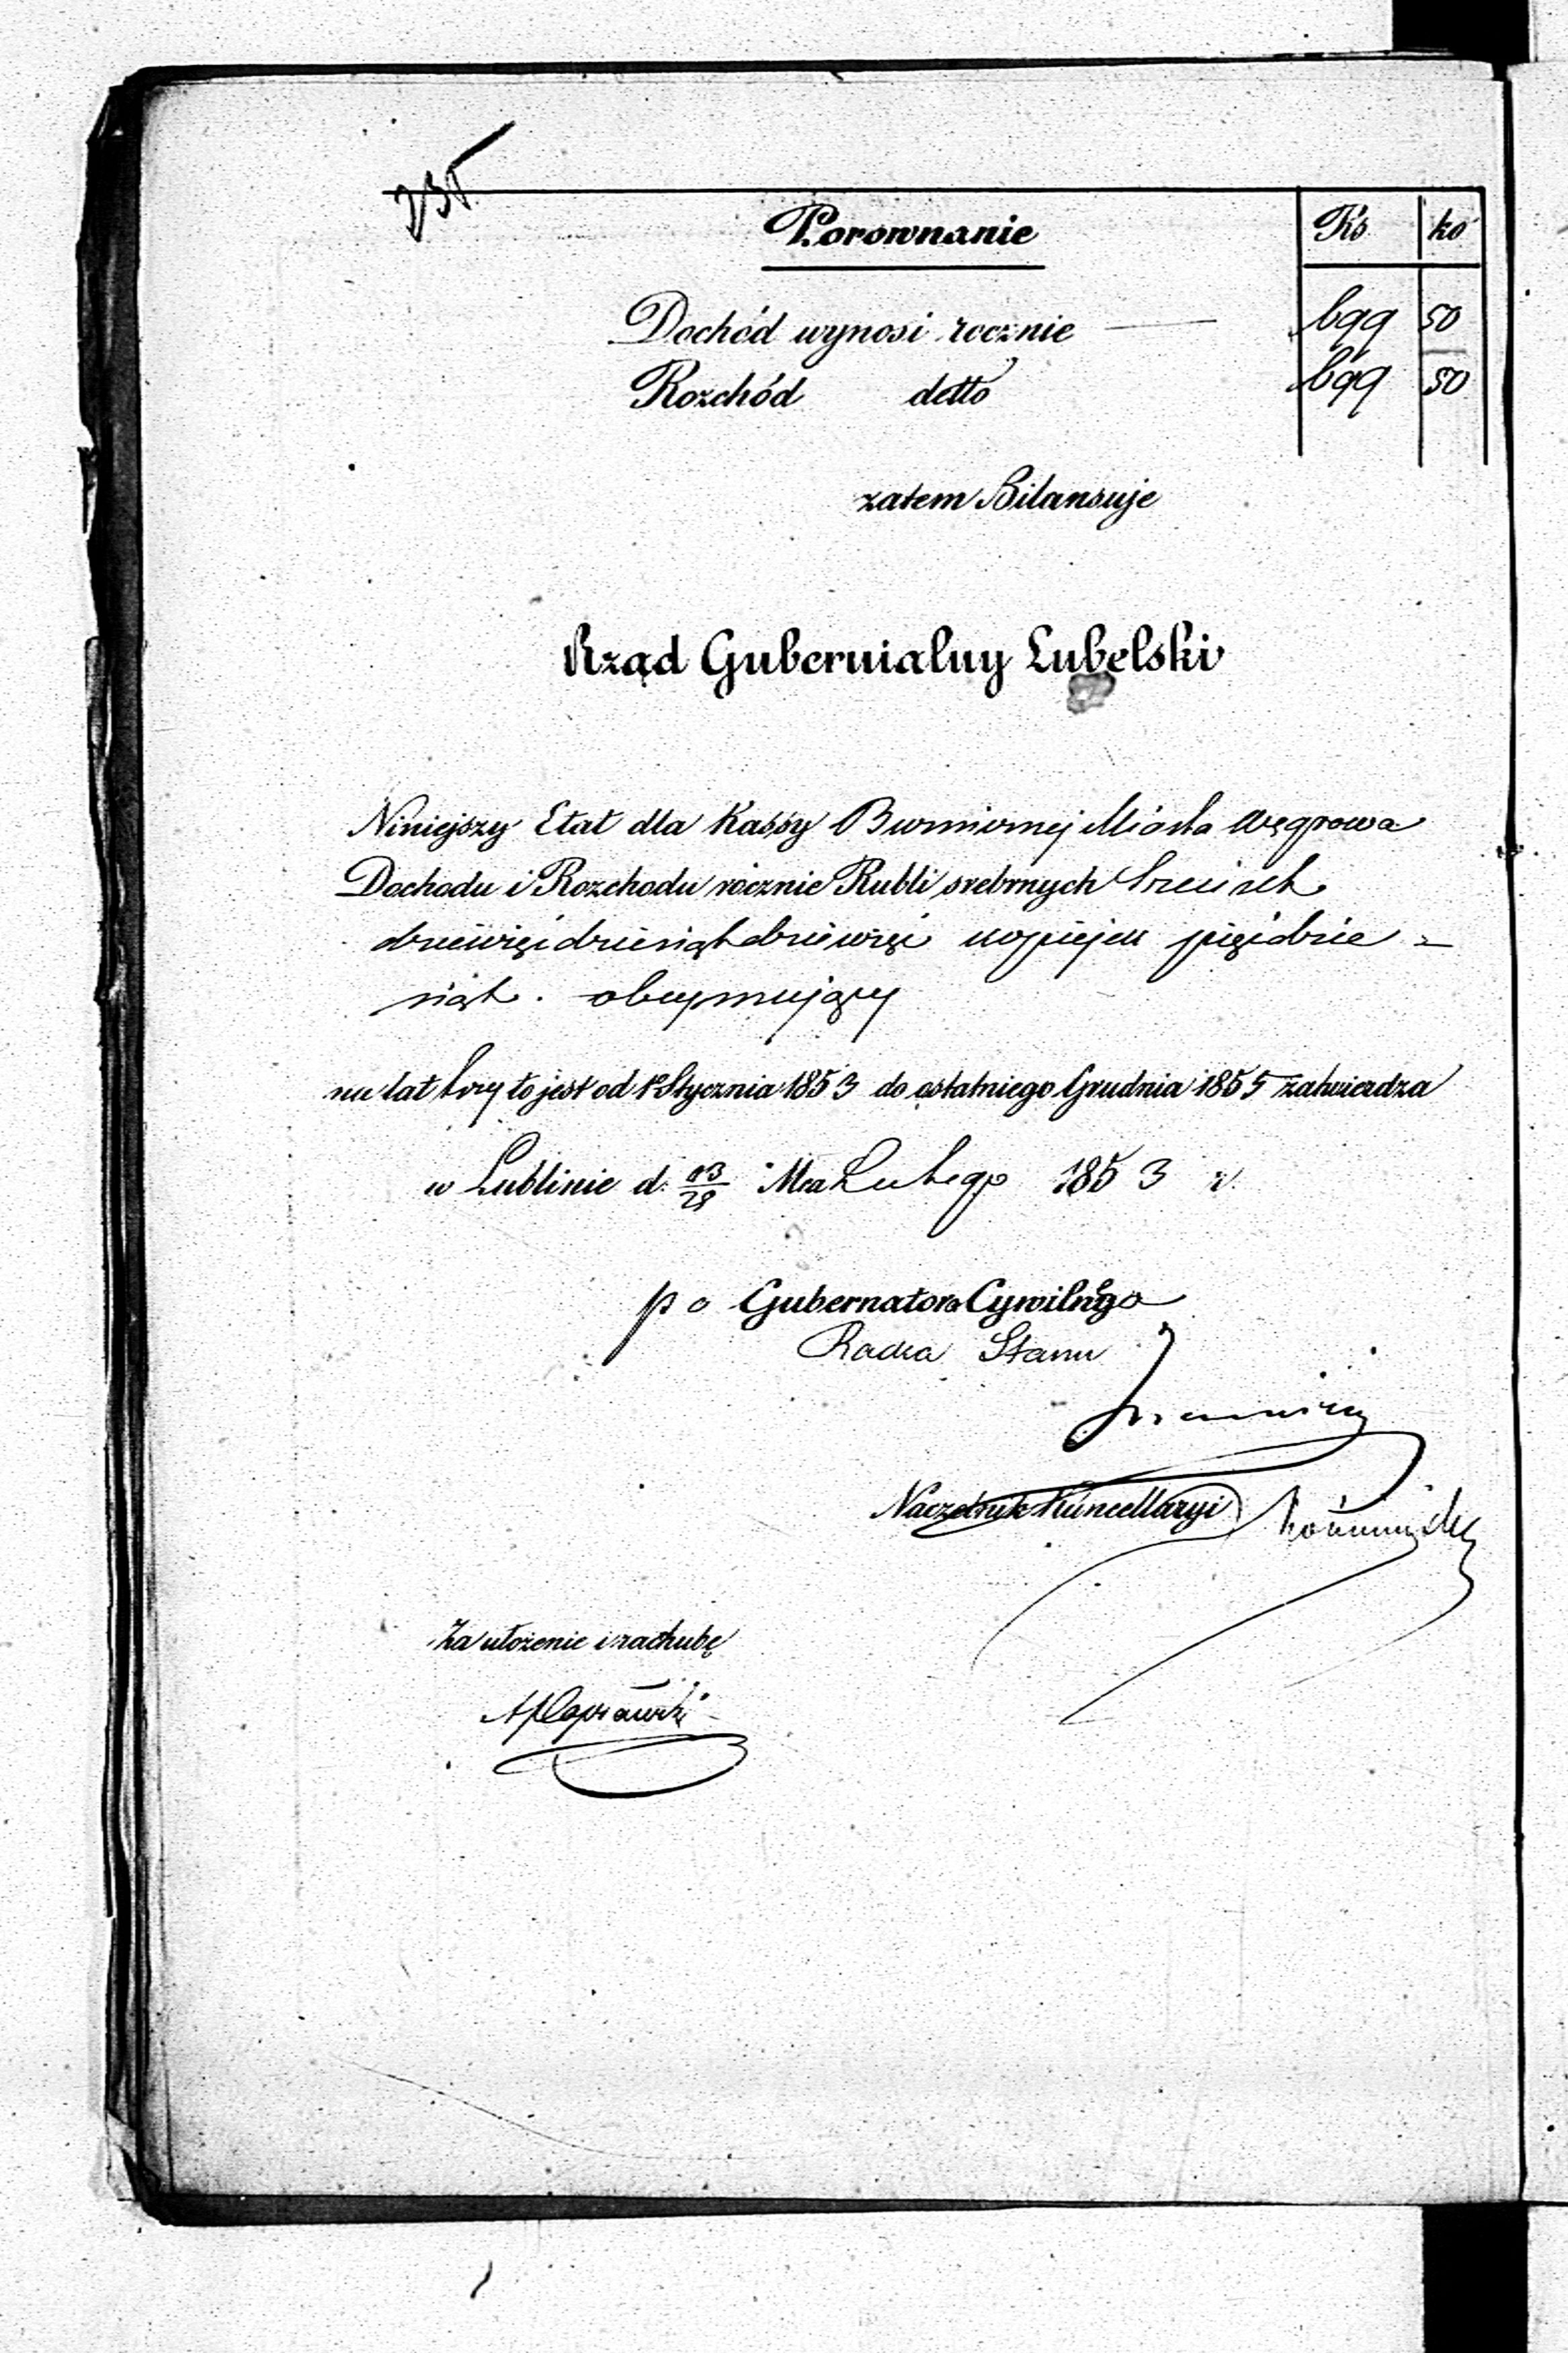 235
Porownanie
Rs ko
Dochód wynosi rocznie 699 50
Rozchód detto 699 50
zatem Bilansuje
Rząd Gubernialny Lubelski
Niniejszy Etat dla Kassy Miasta Węgrowa
Dochodu i Rozchodu rocznie Rubli srebrnych sześćset
dziewięćdziesiąt dziewięć kopiejek pięćdzie=
siąt. obejmujący
na lat trzy to jest od 1º Stycznia 1853 do ostatniego Grudnia 1855 zatwierdza
w Lublinie d. 13/25 Mca Lutego 1853 r.
p o Gubernatora Cywilnego
Radca Stanu
Naczelnik Kancellaryi
Za ułożenie i rachubę